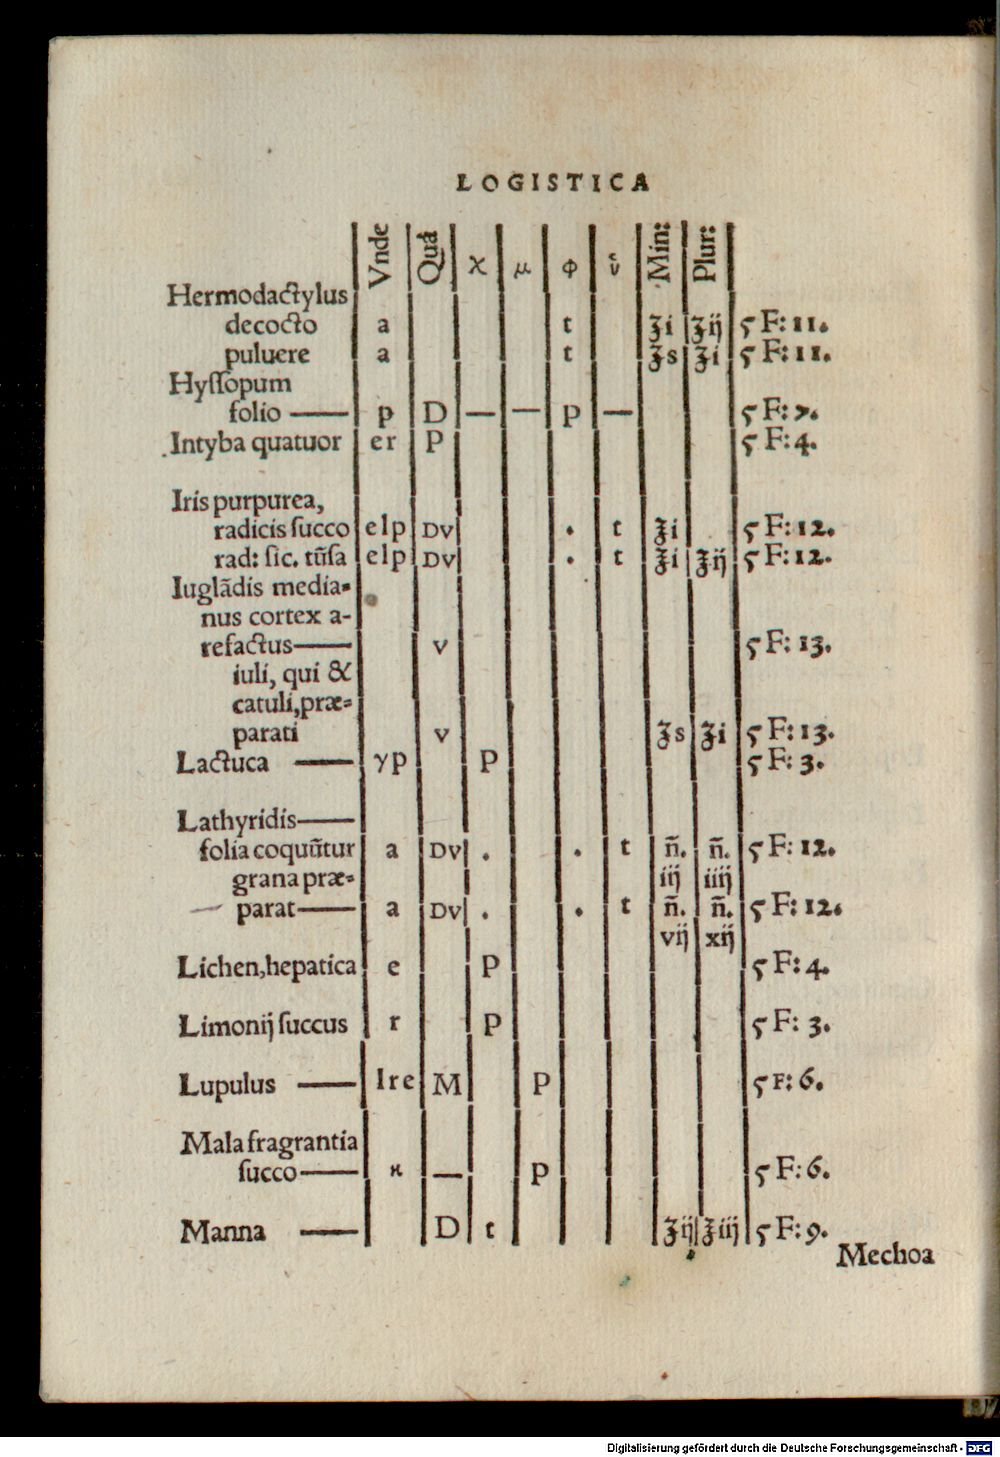 LOGISTICA
Vnde Quā χ μ φ ὑ Min: Plur:
Hermodactylus
decocto a t ʒi ʒij ϛ F: 11.
puluere a t ʒs ʒi ϛ F: 11.
Hyſſopum
folio — p D — — P — ϛ F: 7.
Intyba quatuor er P ϛ F: 4.
Iris purpurea,
radicis ſucco elp DV . t ʒi ϛ F: 12.
rad: ſic. tūſa elp DV . t ʒi ʒij ϛ F: 12.
Iuglādis media-
nus cortex a-
refactus — V ϛ F: 13.
iuli, qui &
catuli, præ-
parati V ʒs ʒi ϛ F: 13.
Lactuca — γp P ϛ F: 3.
Lathyridis —
folia coquūtur a DV . . t ñ. ñ. ϛ F: 12.
grana præ- iij iiij
parat — a DV . . t ñ. ñ. ϛ F: 12.
vij xij
Lichen, hepatica e P ϛ F: 4.
Limonij ſuccus r P ϛ F: 3.
Lupulus — lre M P ϛ F: 6.
Mala fragrantia
ſucco — ϰ — P ϛ F: 6.
Manna — D t ʒij ʒiij ϛ F: 9.
Mechoa
Digitalisierung gefördert durch die Deutsche Forschungsgemeinschaft - DFG